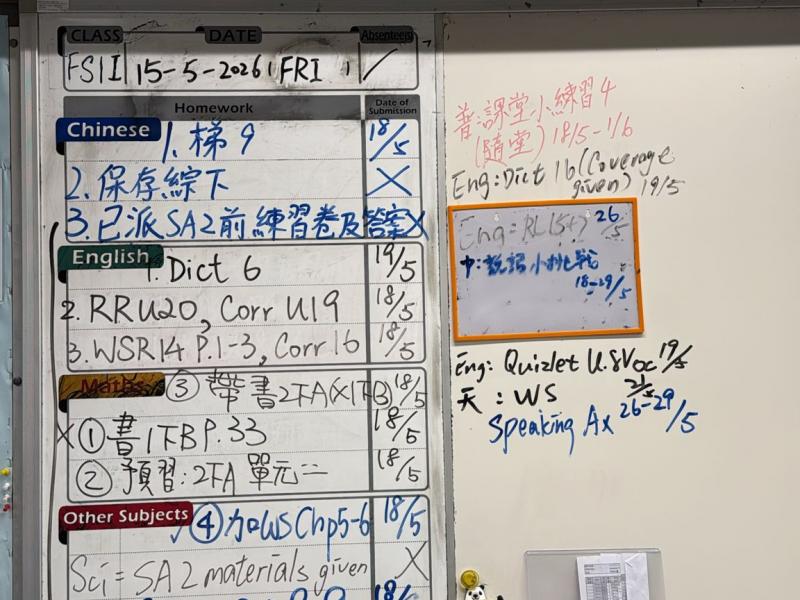 CLASS DATE Absentees
FS1I 15-5-2026 FRI /
Homework Date of Submission
Chinese 1. 梯9 18/5
2. 保存綜下 X
3. 已派SA2前練習卷及答案 X
English 1. Dict 6 19/5
2. RRU20, Corr U19 18/5
3. WSR14 P.1-3, Corr 16 18/5
Maths ③ 帶書2下A(X1下B) 18/5
X ① 書1下B P.33 18/5
② 預習:2下A 單元二 18/5
Other Subjects ④ 加WS Chp5-6 18/5
Sci = SA2 materials given X
普:課堂小練習4
(隨堂) 18/5-1/6
Eng: Dict 16 (Coverage
given) 19/5
Eng: RL(5+) 26/5
中:說話小挑戰
18-29/5
Eng: Quizlet U.8 Voc 19/5
天:WS 21/5
Speaking Ax 26-29/5